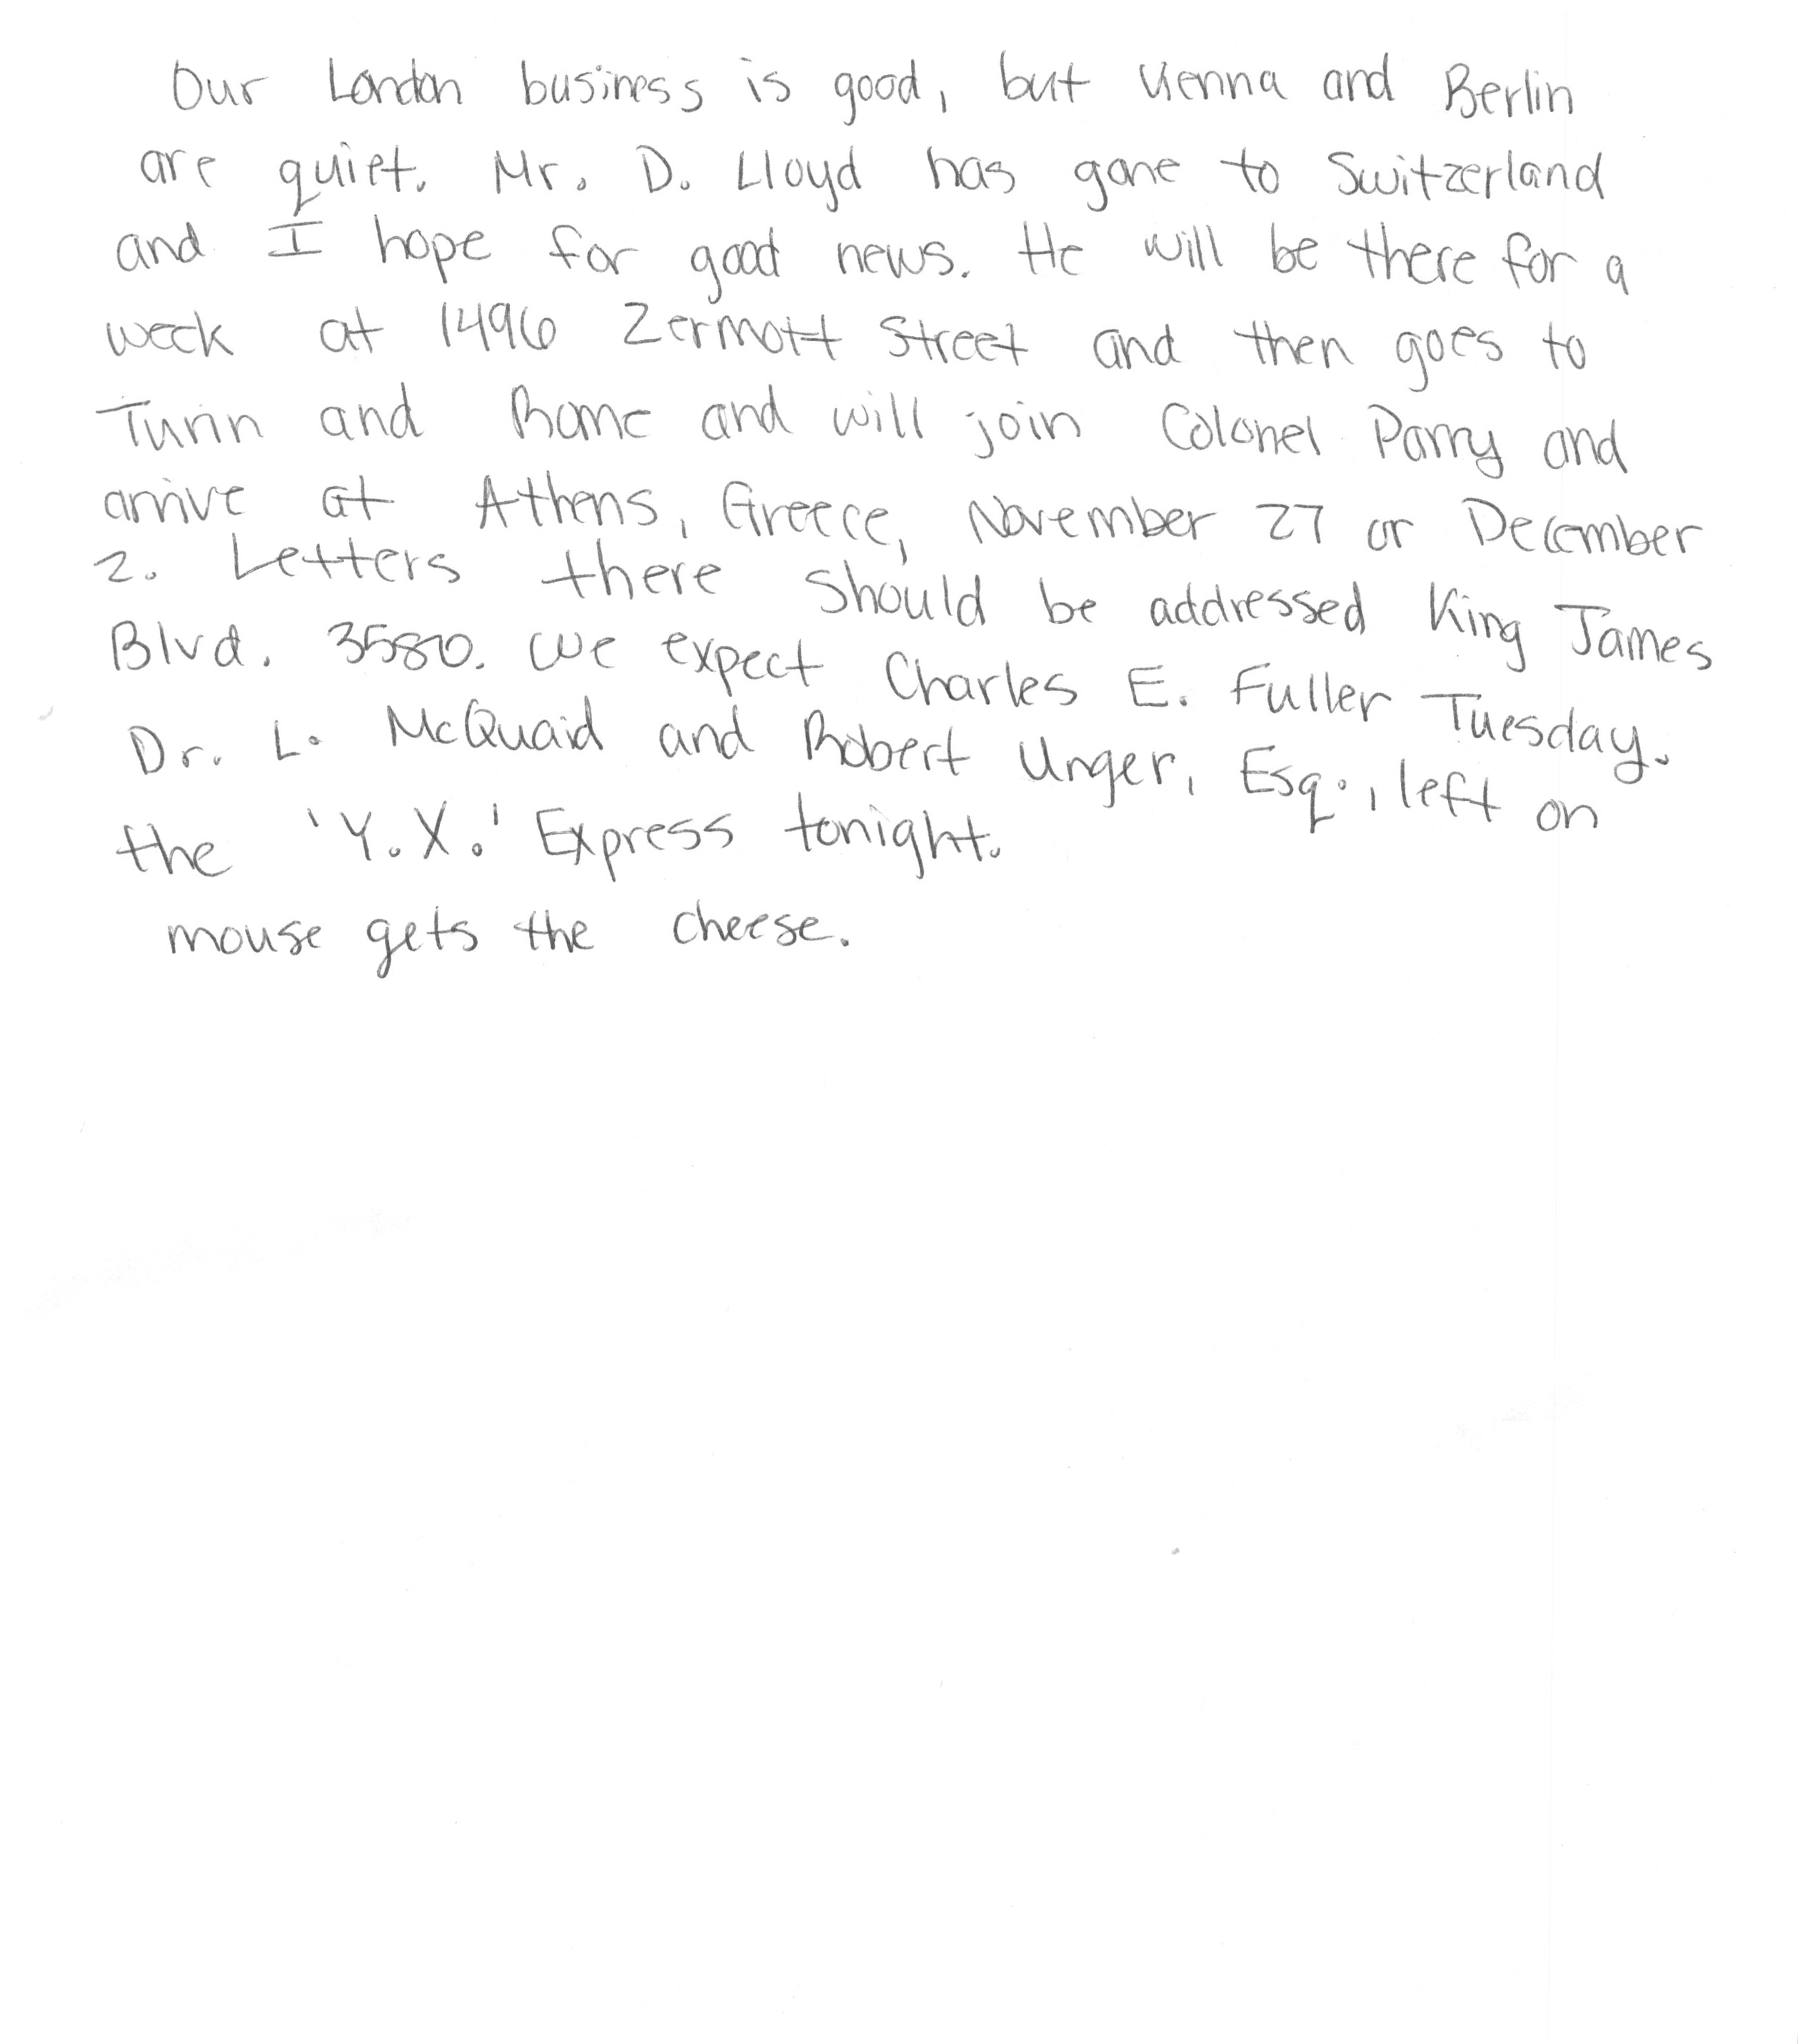 Our London business is good, but Vienna and Berlin
are quiet. Mr. D. Lloyd has gone to Switzerland
and I hope for good news. He will be there for a
week at 1496 Zermott Street and then goes to
Turin and Rome and will join Colonel Parry and
arrive at Athens, Greece, November 27 or December
2. Letters there should be addressed King James
Blvd. 3580. We expect Charles E. Fuller Tuesday.
Dr. L. McQuaid and Robert Unger, Esq., left on
the 'Y.X.' Express tonight.
mouse gets the cheese.